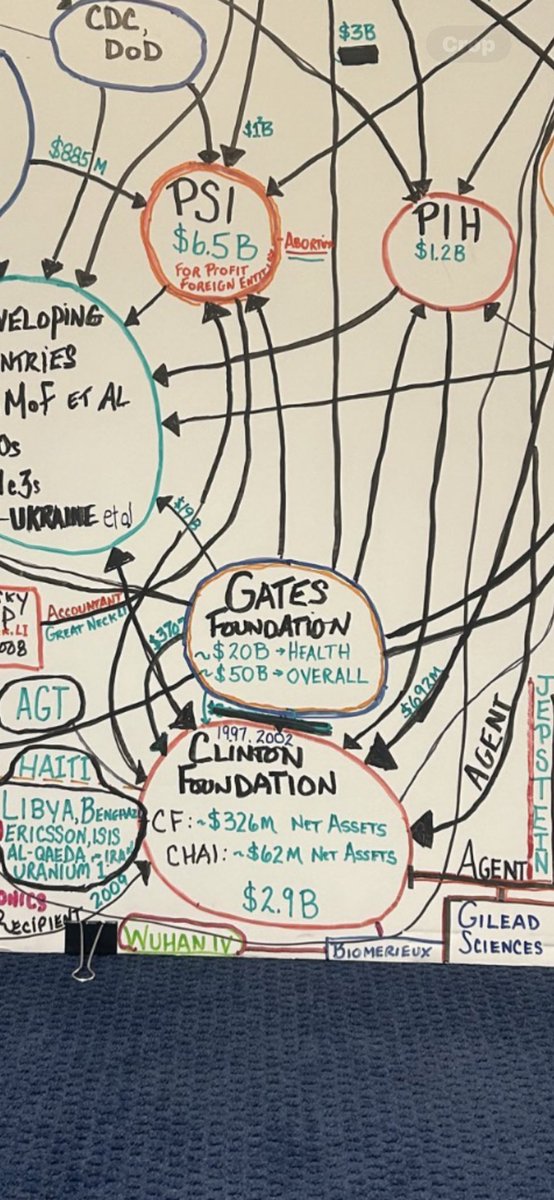 CDC,
DoD
$3B
Crop
$1B
$885M
PSI
$6.5B
FOR PROFIT
FOREIGN ENTITIES
PIH
$1.2B
VELOPING
NTRIES
MOF ET AL
Os
1c3s
-UKRAINE et al
$19B
KY
P
.LI
008
ACCOUNTANT
GREAT NECK LI
GATES
FOUNDATION
~$20B → HEALTH
~$50B → OVERALL
$370?
$692M
1997, 2002
CLINTON
FOUNDATION
CF: ~$326M NET ASSETS
CHAI: ~$62M NET ASSETS
$2.9B
AGT
HAITI
LIBYA, BENGHAZI
ERICSSON, ISIS
AL-QAEDA - IRAN
URANIUM 1
2009
ONICS
RECIPIENT
WUHAN IV
BIOMERIEUX
AGENT
AGENT
JEPSTEIN
GILEAD
SCIENCES